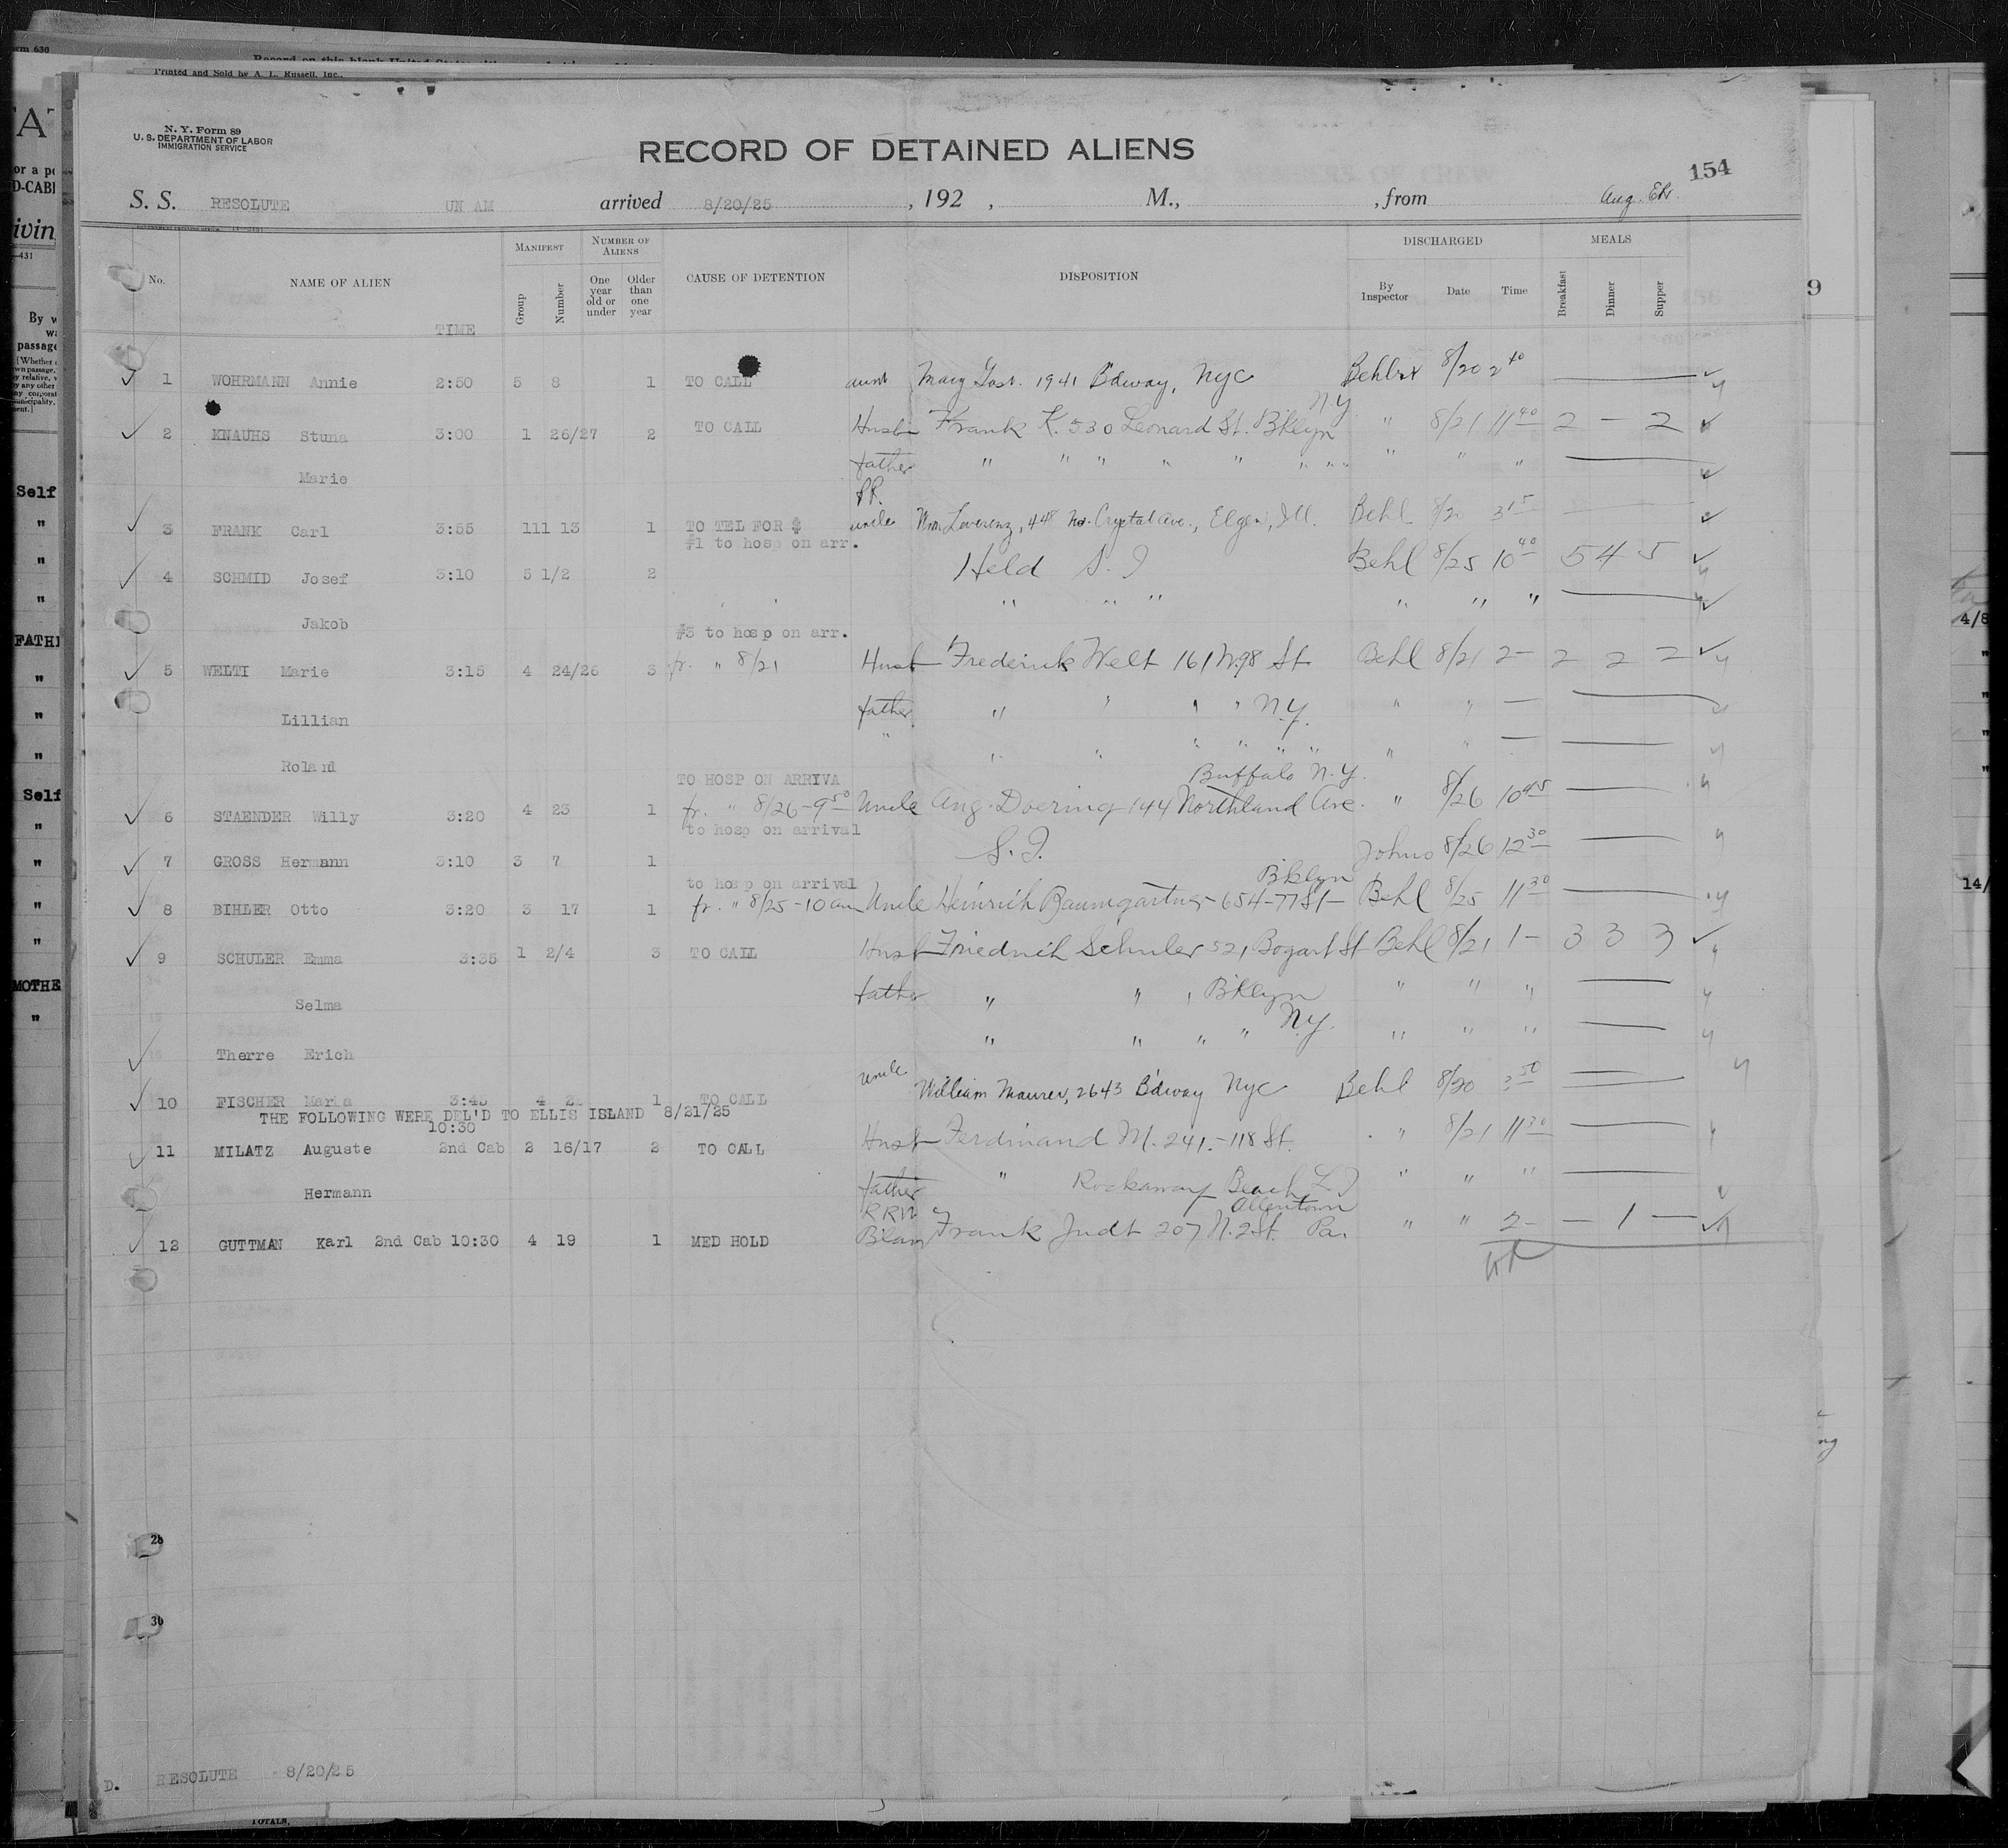 Printed and Sold by A. L. Russell, Inc.,
N. Y. Form 89
U. S. DEPARTMENT OF LABOR
IMMIGRATION SERVICE
RECORD OF DETAINED ALIENS
154
S. S. RESOLUTE UN AM arrived 8/20/25 , 192 , M., , from Aug. Ek.
No. NAME OF ALIEN TIME MANIFEST Group Number NUMBER OF ALIENS One year old or under Older than one year CAUSE OF DETENTION DISPOSITION DISCHARGED By Inspector Date Time MEALS Breakfast Dinner Supper
1 WOHRMANN Annie 2:50 5 8 1 TO CALL aunt Mary 1941 B'dway, NYC 8/20 2 40
NY
2 KNAUHS Stuna 3:00 1 26/27 2 TO CALL Husb Frank K. 530 Leonard St. Bklyn " 8/21 11 40 2 — 2
Marie father " " " " " " " " " " "
PR.
3 FRANK Carl 3:55 111 13 1 TO TEL FOR $ uncle Wm Leverenz, 448 No. Crystal Ave., Elgin, Ill. Behl 8/20 3 15
#1 to hosp on arr.
4 SCHMID Josef 3:10 5 1/2 2 Held S. I Behl 8/25 10 40 5 4 5
Jakob " " " " " "
#3 to hosp on arr.
5 WELTI Marie 3:15 4 24/26 3 fr. " 8/21 Husb Frederick Welt 161 W. 98 St Behl 8/21 2 - 2 2 2
Lillian father " " " " N.Y. " " —
Roland " " " " " " " " " —
TO HOSP ON ARRIVA Buffalo N.Y.
6 STAENDER Willy 3:20 4 23 1 fr. " 8/26 - 9 50 Uncle Aug. Doering 144 Northland Ave. " 8/26 10 45
to hosp on arrival
7 GROSS Hermann 3:10 3 7 1 S. I. Johns 8/26 12 30
to hosp on arrival Bklyn
8 BIHLER Otto 3:20 3 17 1 fr. " 8/25 - 10 am Uncle Heinrich Baumgartner - 654 - 77 St - Behl 8/25 11 30
9 SCHULER Emma 3:35 1 2/4 3 TO CALL Husb Friedrich Schuler 521 Bogart St Behl 8/21 1 - 3 3 3
Selma father " " " Bklyn " " "
N.Y.
Therre Erich " " " " " " "
10 FISCHER Maria 3:45 4 1 TO CALL uncle William Maurer, 2643 B'dway NYC Behl 8/20 3 50
THE FOLLOWING WERE DEL'D TO ELLIS ISLAND 8/21/25
10:30
11 MILATZ Auguste 2nd Cab 2 16/17 2 TO CALL Husb Ferdinand M. 241. - 118 St. " 8/21 11 30
Hermann father " Rockaway Beach L I " " "
RRN Allentown
12 GUTTMAN Karl 2nd Cab 10:30 4 19 1 MED HOLD B'law Frank Judt 207 N. 2 St. Pa. " " 2 - — 1 —
28
30
D. RESOLUTE 8/20/25
TOTALS,